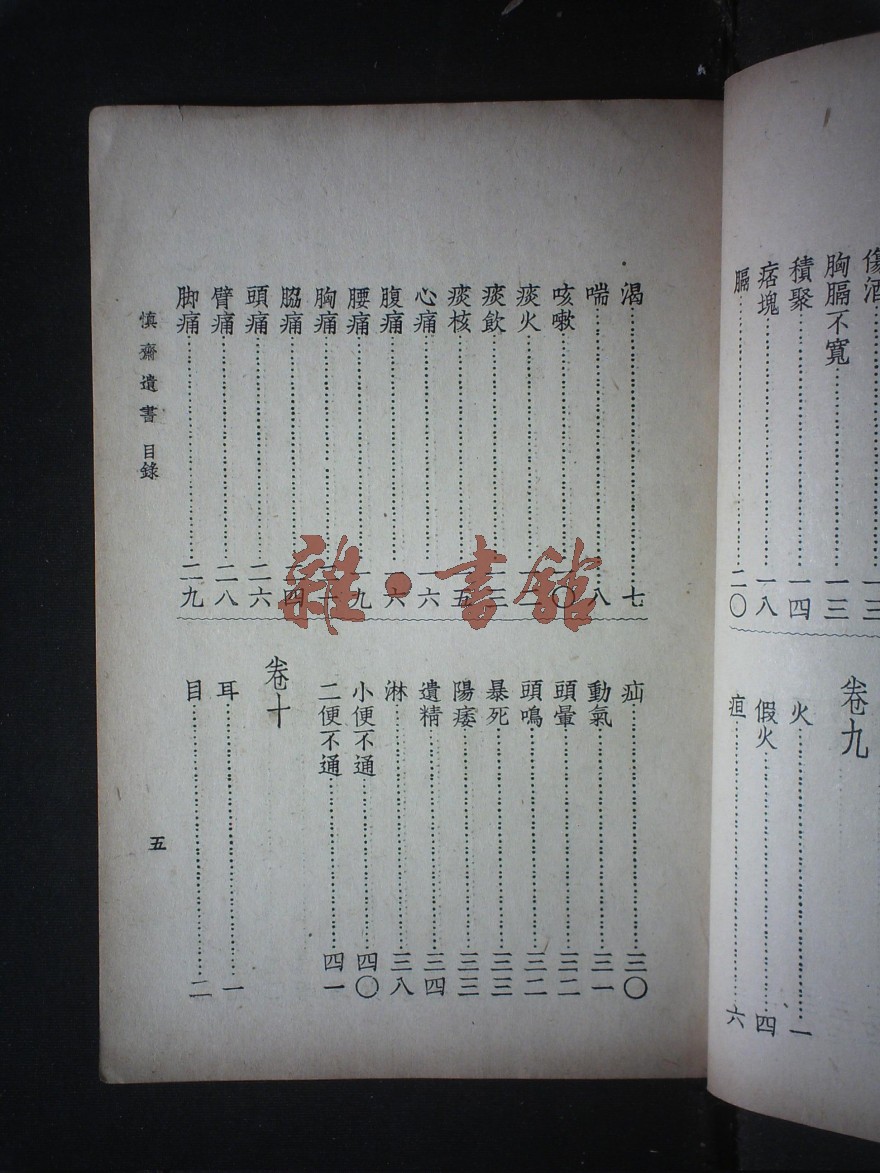 傷酒……一三
胸膈不寬……一三
積聚……一四
痞塊……一八
膈……二〇
卷九
火……一
假火……四
疸……六
渴……七
喘……八
咳嗽……〇
痰火……一二
痰飲……三
痰核……五
心痛……一六
腹痛……一六
腰痛……一九
胸痛……
脇痛……四
頭痛……二六
臂痛……二八
脚痛……二九
疝……三〇
動氣……三一
頭暈……三二
頭鳴……三二
暴死……三三
陽痿……三三
遺精……三四
淋……三八
小便不通……四〇
二便不通……四一
卷十
耳……一
目……二
慎齋遺書 目錄
五
雜·書館